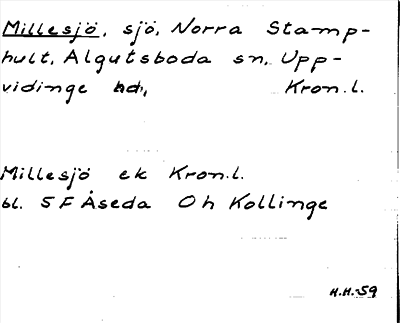 Millesjö, sjö, Norra Stamp-
hult, Algutsboda sn, Upp-
vidinge hd, Kron.l.
Millesjö ek Kron.l.
bl. 5F Åseda Oh Kollinge
H.H.-59